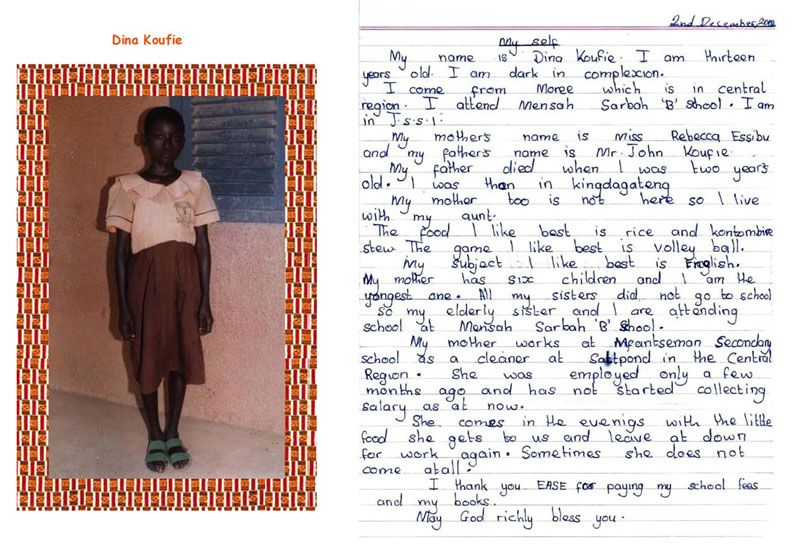 Dina Koufie
2nd December, 2002
My self
My name is Dina Koufie. I am thirteen
years old. I am dark in complexcion.
I come from Moree which is in central
region. I attend Mensah Sarbah 'B' School. I am
in J.S.S.1.
My mother's name is Miss Rebecca Essibu
and my father's name is Mr. John Koufie.
My father died when I was two year's
old. I was then in kingdagateng
My mother too is not here so I live
with my aunt.
The food I like best is rice and kontombire
stew. The game I like best is volley ball.
My subject I like best is English.
My mother has six children and I am the
yongest one. All my sisters did not go to school
so my elderly sister and I are attending
school at Mensah Sarbah 'B' School.
My mother works at Mfantseman Secondary
school as a cleaner at Saltpond in the Central
Region. She was employed only a few
months ago and has not started collecting
salary as at now.
She comes in the evenigs with the little
food she gets to us and leave at down
for work again. Sometimes she does not
come atall.
I thank you EASE for paying my school fees
and my books.
May God richly bless you.